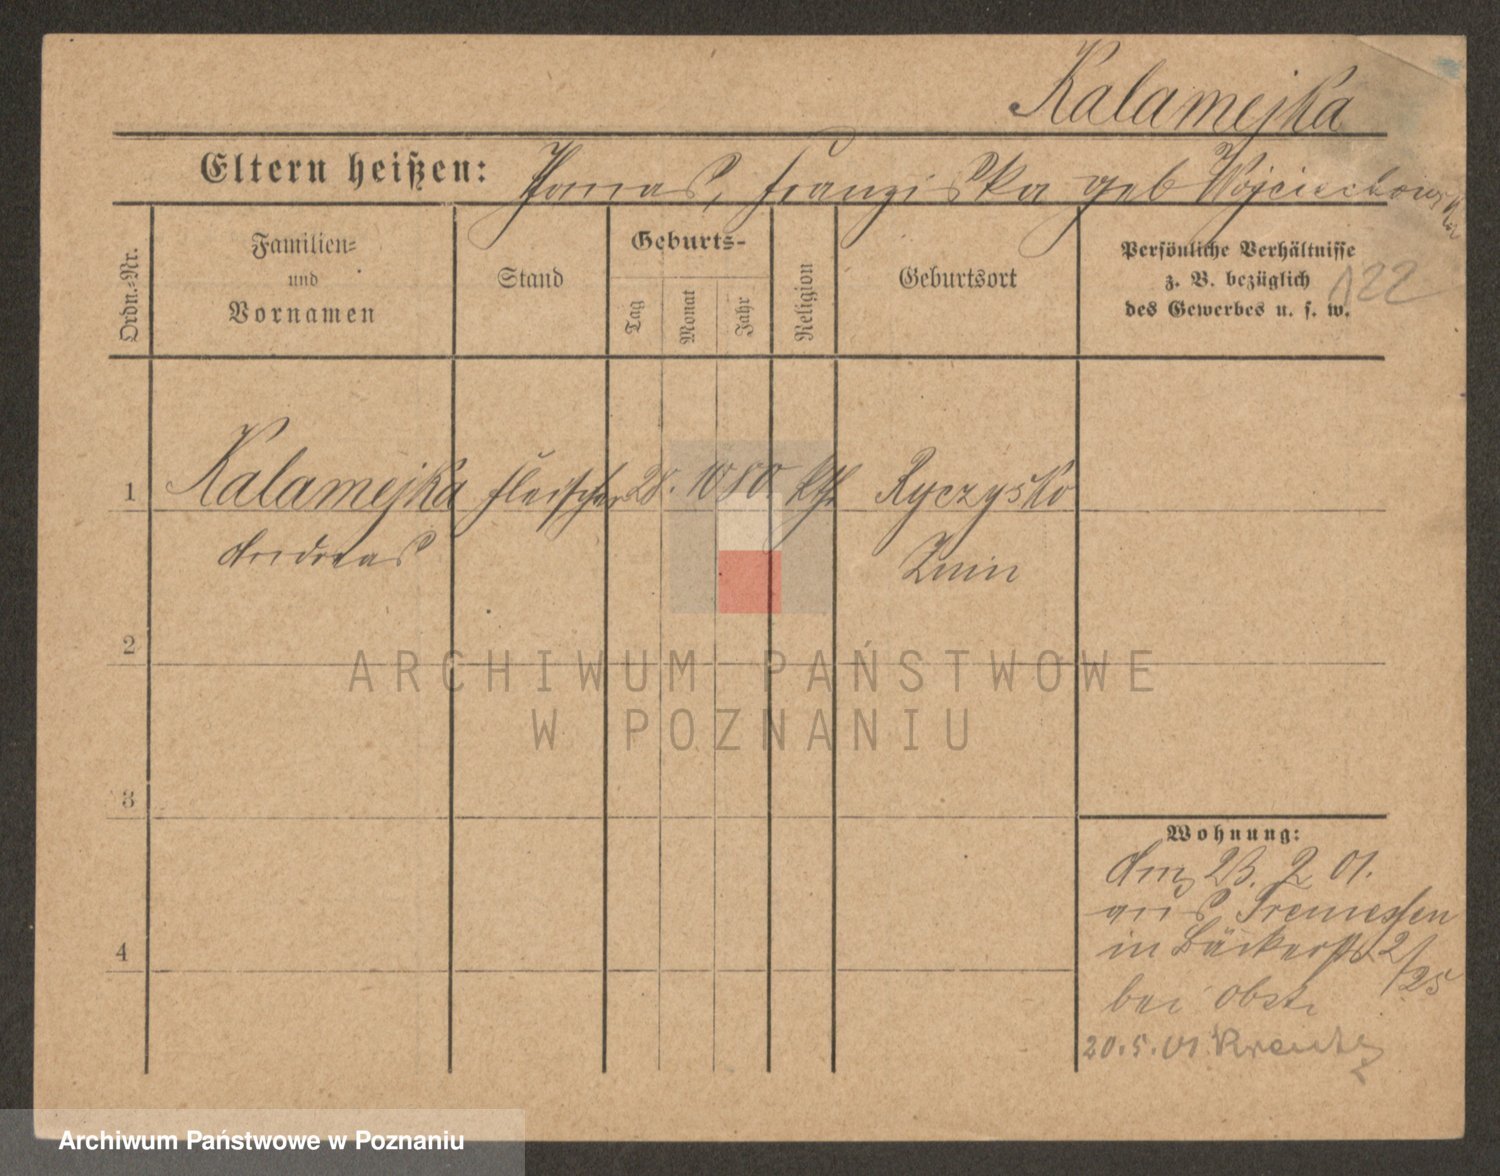 Kalamejka
Eltern heißen: Thomas, Franziska geb Wojciechowska
Ordn.-Nr.
Familien-
und
Vornamen
Stand
Geburts-
Tag
Monat
Jahr
Religion
Geburtsort
Persönliche Verhältnisse
z. B. bezüglich
des Gewerbes u. s. w.
122
1 Kalamejka Fleischer 28. 10 80. kth Ryczysko
Andreas Znin
2
ARCHIWUM PAŃSTWOWE
W POZNANIU
3
Wohnung:
23. 2 01.
aus Tremessen
in Bäckerstr. 2/25
4
bei Obst
20.5.01
Archiwum Państwowe w Poznaniu